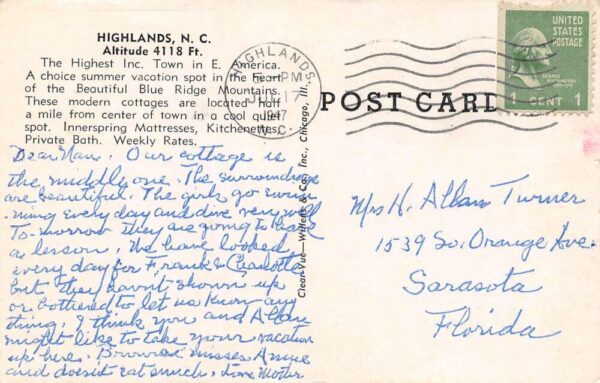 HIGHLANDS, N. C.
Altitude 4118 Ft.
The Highest Inc. Town in E. America.
A choice summer vacation spot in the heart
of the Beautiful Blue Ridge Mountains.
These modern cottages are located half
a mile from center of town in a cool quiet
spot. Innerspring Mattresses, Kitchenettes,
Private Bath. Weekly Rates.
Dear Nan. Our cottage is
the middly one. The surroundings
are beautiful. The girls go swim
ning every day and dive very well
To-morrow they are going to
a lesson. We have looked
every day for Frank & Charlotte
but they havn't shown up
or bothered to let us know any
thing. I think you and Allan
might like to take your vacation
up here. Brownie misses Anne
and doesn't eat much. Love Mother
Clear-Vue—Willens & Co., Inc., Chicago, Ill.
HIGHLANDS,
PM
JUL 17
1947
N.C.
POST CARD
UNITED
STATES
POSTAGE
GEORGE
WASHINGTON
1 CENT 1
Mrs H. Allan Turner
1539 So. Orange Ave.
Sarasota
Florida